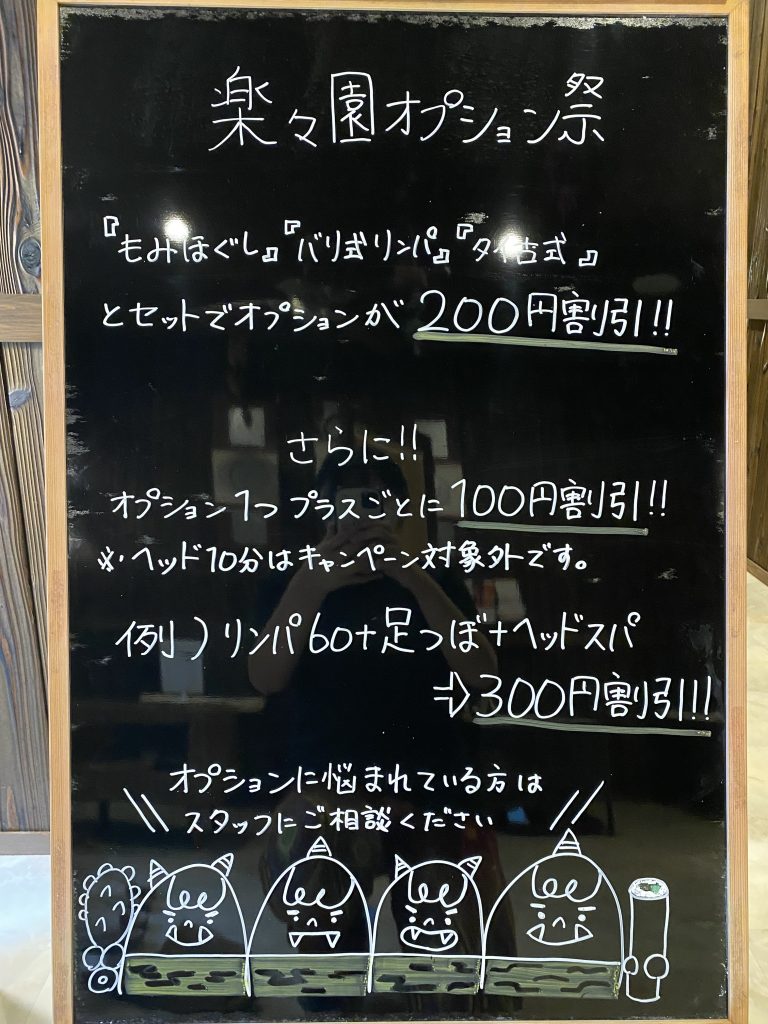 楽々園オプション祭
『もみほぐし』『バリ式リンパ』『タイ古式』
とセットでオプションが 200円割引!!
さらに!!
オプション1つプラスごとに100円割引!!
※・ヘッド10分はキャンペーン対象外です。
例)リンパ60+足つぼ+ヘッドスパ
⇨300円割引!!!
オプションに悩まれている方は
スタッフにご相談ください